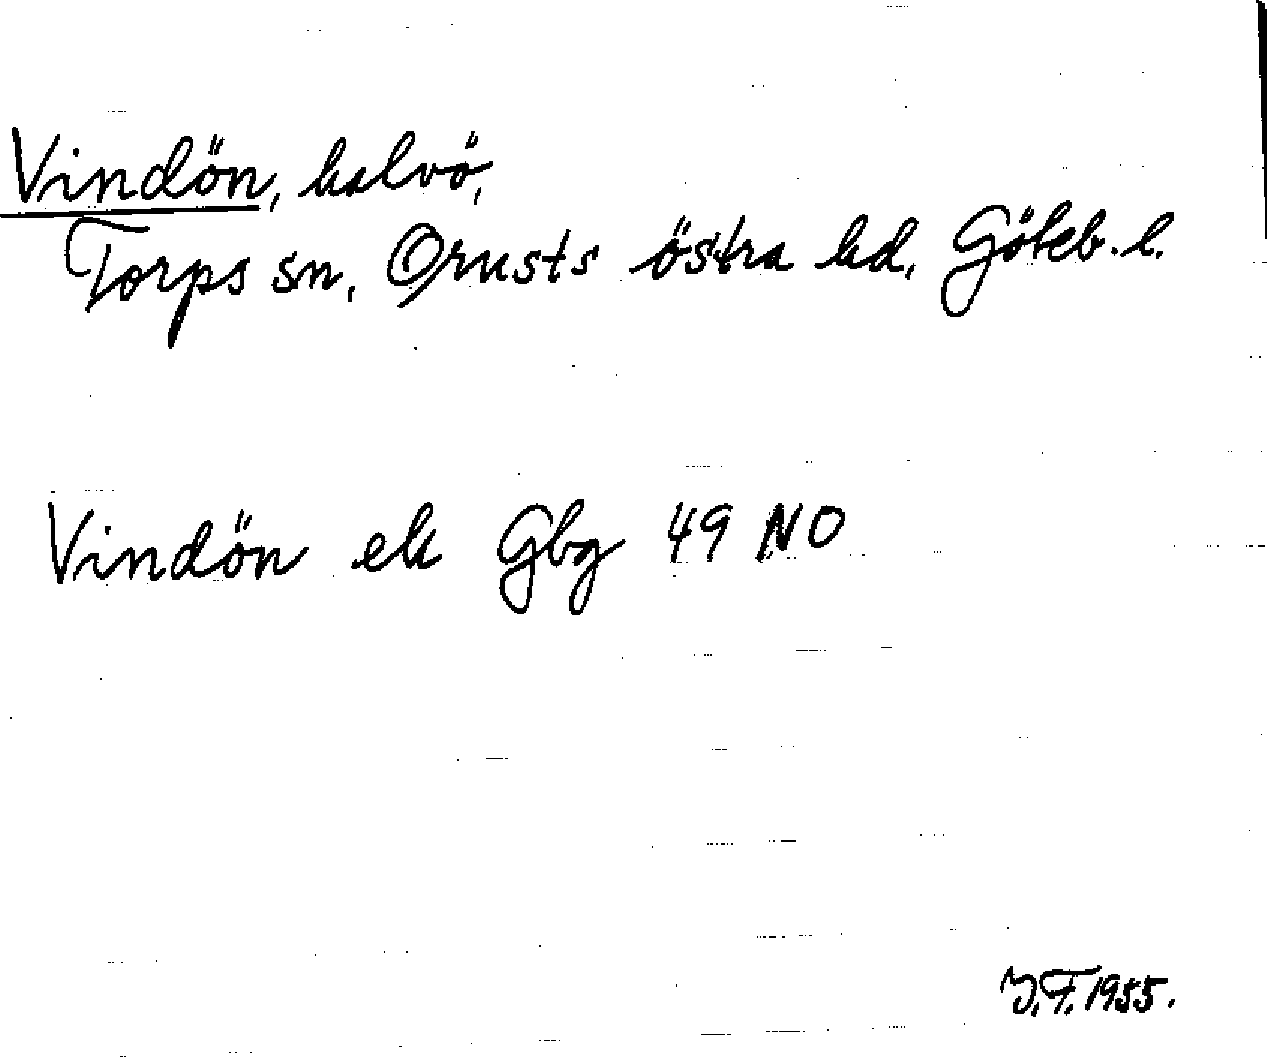 Vindön, halvö,
Torps sn, Orusts östra hd, Göteb. l.
Vindön ek Gbg 49 NO
J.F. 1955.